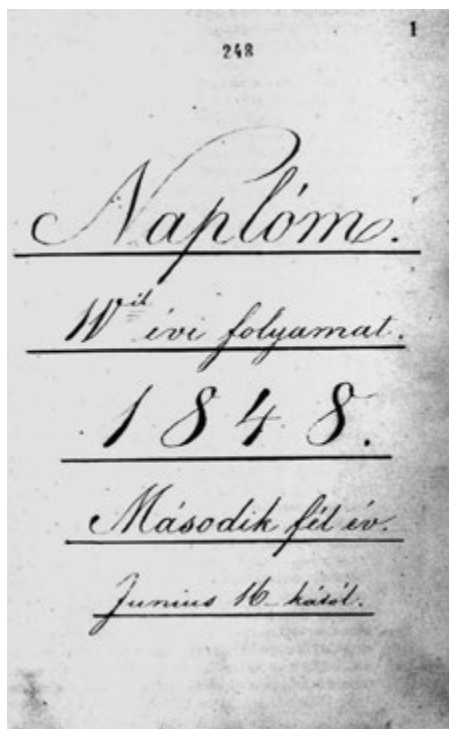 1
248
Naplóm.
IVik évi folyamat.
1848.
Második fél év.
Junius 16-kától.